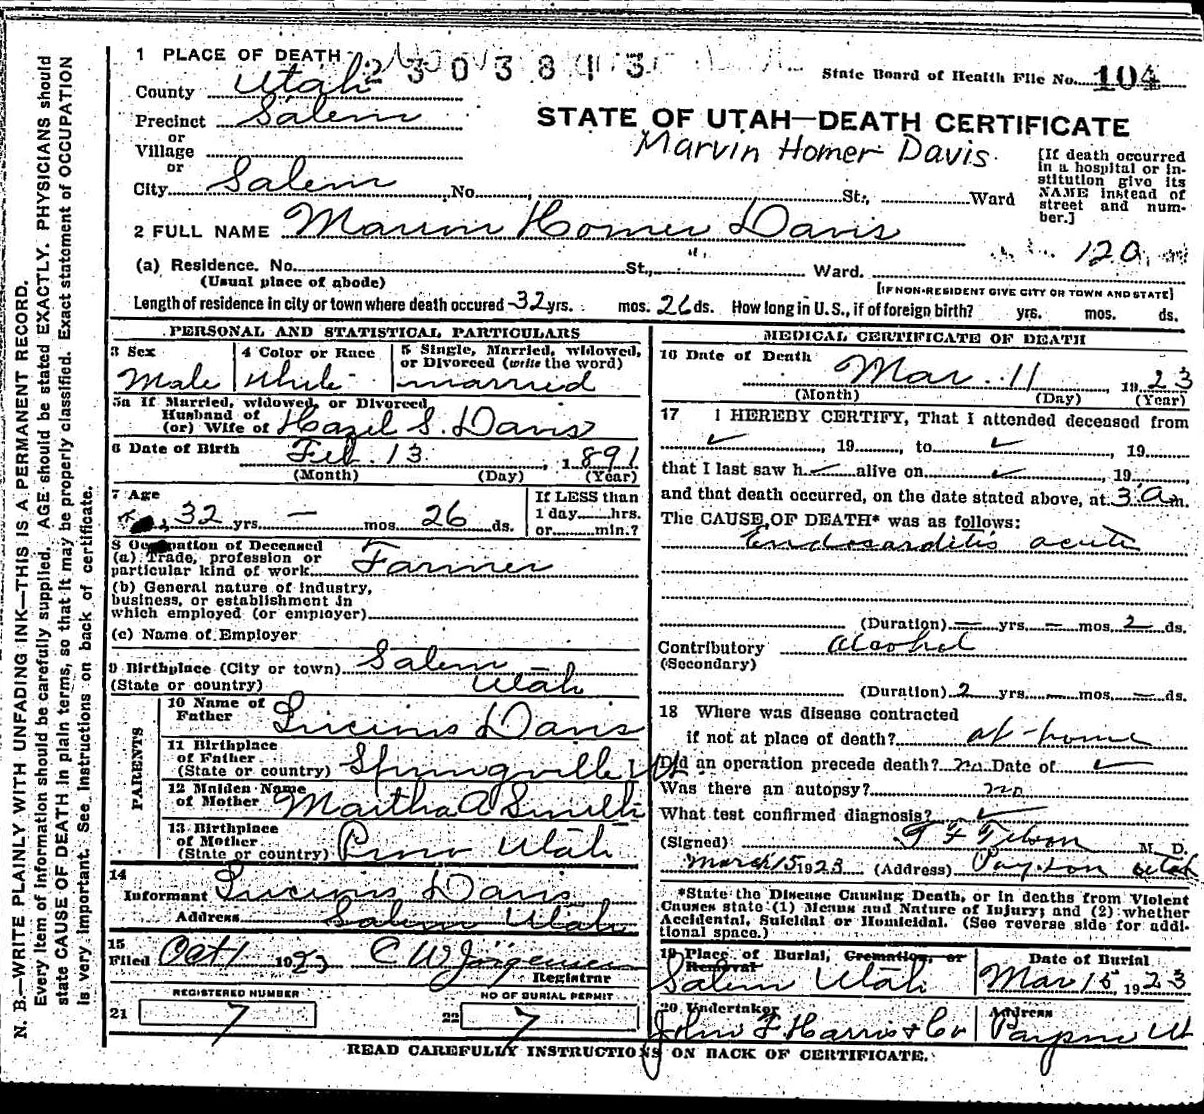 N. B.—WRITE PLAINLY WITH UNFADING INK—THIS IS A PERMANENT RECORD.
Every item of information should be carefully supplied. AGE should be stated EXACTLY. PHYSICIANS should
state CAUSE OF DEATH in plain terms, so that it may be properly classified. Exact statement of OCCUPATION
is very important. See instructions on back of certificate.
1 PLACE OF DEATH
2303813
State Board of Health File No. 104
County Utah
Precinct Salem
or
Village
or
City Salem No. St., Ward
STATE OF UTAH—DEATH CERTIFICATE
Marvin Homer Davis
[If death occurred
in a hospital or in-
stitution give its
NAME instead of
street and num-
ber.]
2 FULL NAME Marvin Homer Davis
120
(a) Residence. No. St., Ward.
(Usual place of abode)
[IF NON-RESIDENT GIVE CITY OR TOWN AND STATE]
Length of residence in city or town where death occured 32 yrs. mos. 26 ds. How long in U. S., if of foreign birth? yrs. mos. ds.
PERSONAL AND STATISTICAL PARTICULARS
3 Sex
Male
4 Color or Race
White
5 Single, Married, widowed,
or Divorced (write the word)
married
5a If Married, widowed, or Divorced
Husband of
(or) Wife of Hazel S. Davis
6 Date of Birth Feb. 13, 1891
(Month) (Day) (Year)
7 Age
32 yrs. — mos. 26 ds.
If LESS than
1 day hrs.
or min.?
8 Occupation of Deceased
(a) Trade, profession or
particular kind of work. Farmer
(b) General nature of industry,
business, or establishment in
which employed (or employer)
(c) Name of Employer
9 Birthplace (City or town) Salem
(State or country) Utah
PARENTS
10 Name of
Father Lucius Davis
11 Birthplace
of Father
(State or country) Springville Ut
12 Maiden Name
of Mother Martha A Smith
13 Birthplace
of Mother
(State or country) Provo Utah
14
Informant Lucius Davis
Address Salem Utah
15
Filed Oct 1 1923 C W Jorgensen
Registrar
REGISTERED NUMBER
21 7
NO OF BURIAL PERMIT
22 7
MEDICAL CERTIFICATE OF DEATH
16 Date of Death Mar. 11, 1923
(Month) (Day) (Year)
17 I HEREBY CERTIFY, That I attended deceased from
, 19 , to , 19
that I last saw h alive on , 19
and that death occurred, on the date stated above, at 3 a m.
The CAUSE OF DEATH* was as follows:
Endocarditis acute
(Duration) — yrs. — mos. 2 ds.
Contributory Alcohol
(Secondary)
(Duration) 2 yrs. — mos. — ds.
18 Where was disease contracted
if not at place of death? at home
Did an operation precede death? no Date of
Was there an autopsy? no
What test confirmed diagnosis?
(Signed) M. D.
March 15 1923 (Address) Payson Utah
*State the Disease Causing Death, or in deaths from Violent
Causes state (1) Means and Nature of Injury; and (2) whether
Accidental, Suicidal or Homicidal. (See reverse side for addi-
tional space.)
19 Place of Burial, Cremation, or
Removal
Salem Utah
Date of Burial
Mar 15, 1923
20 Undertaker
John F Harris & Co
Address
Payson Ut
READ CAREFULLY INSTRUCTIONS ON BACK OF CERTIFICATE.